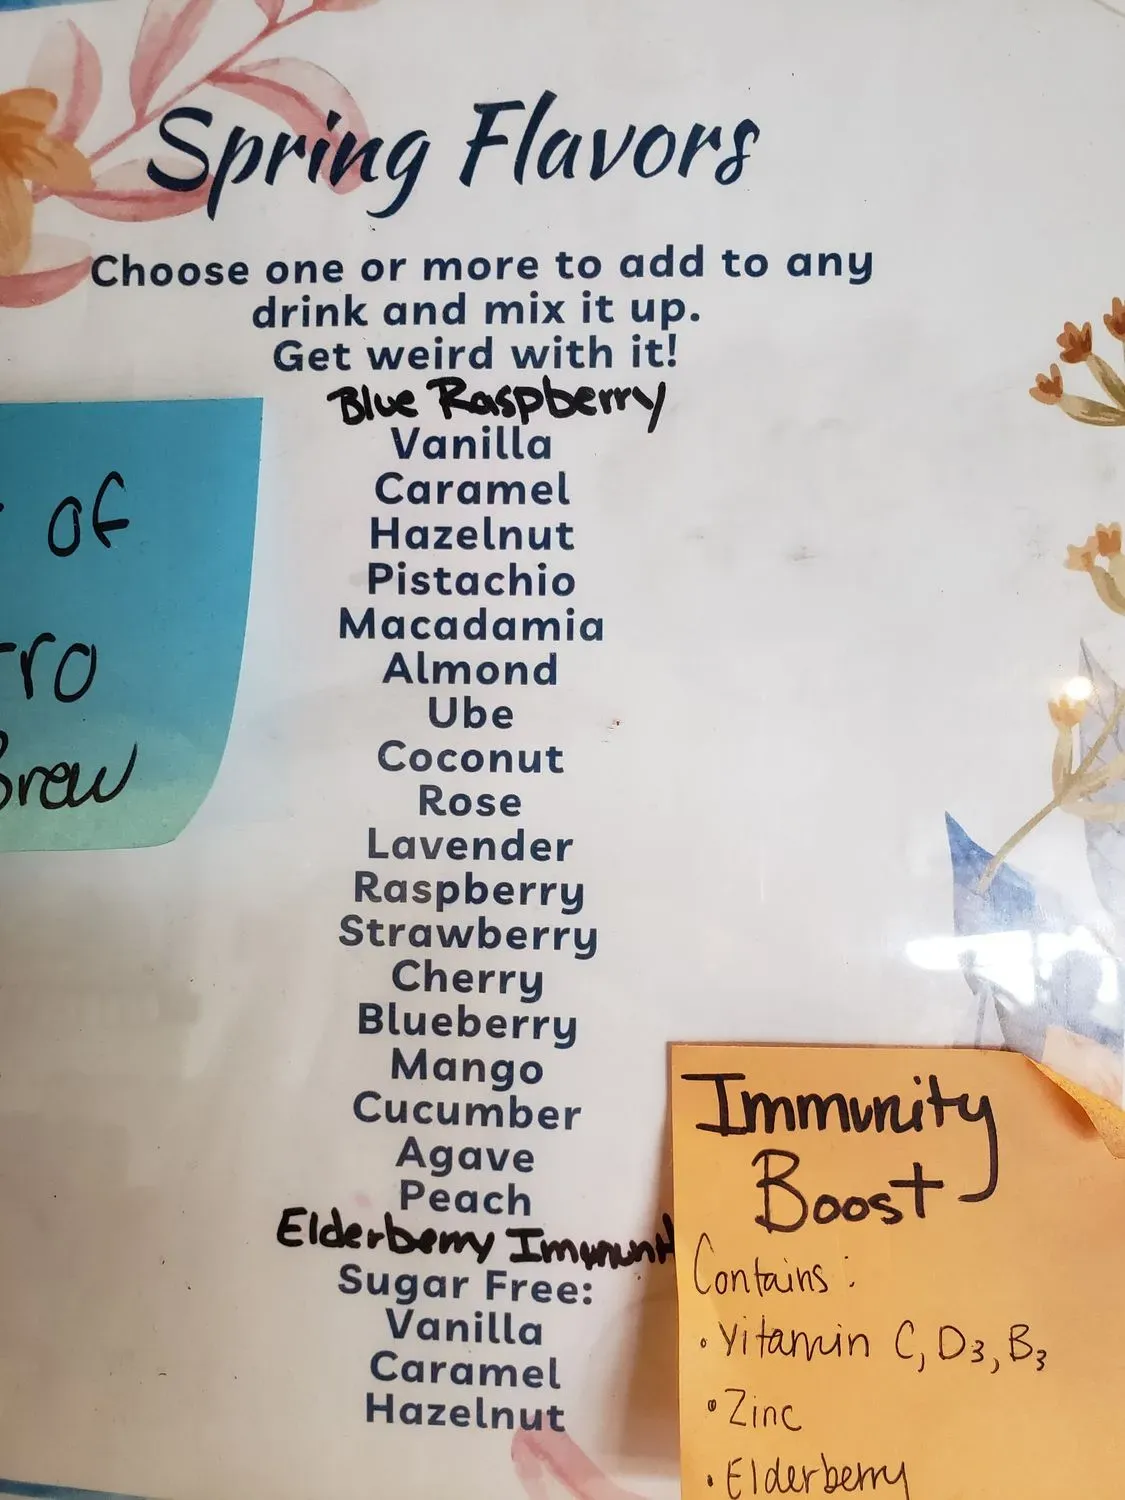 Spring Flavors
Choose one or more to add to any
drink and mix it up.
Get weird with it!
Blue Raspberry
Vanilla
Caramel
Hazelnut
Pistachio
Macadamia
Almond
Ube
Coconut
Rose
Lavender
Raspberry
Strawberry
Cherry
Blueberry
Mango
Cucumber
Agave
Peach
Elderberry
Sugar Free:
Vanilla
Caramel
Hazelnut
of
Brew
Immunity
Boost
Contains:
• Vitamin C, D3, B3
• Zinc
• Elderberry